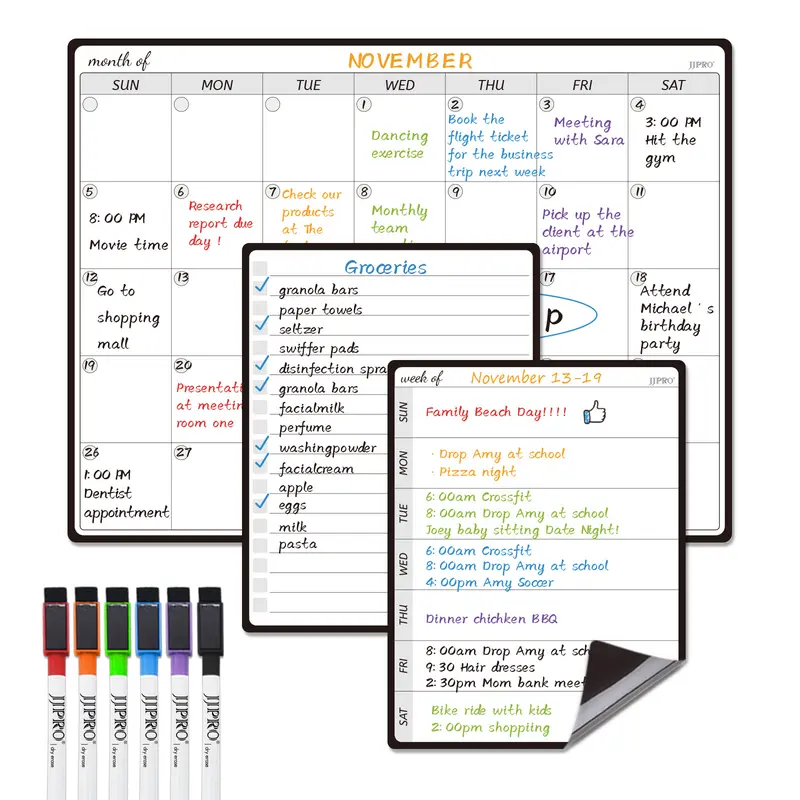 month of NOVEMBER JJPRO®
SUN MON TUE WED THU FRI SAT
1
Dancing
exercise
2
Book the
flight ticket
for the business
trip next week
3
Meeting
with Sara
4
3:00 PM
Hit the
gym
5
8:00 PM
Movie time
6
Research
report due
day !
7
Check our
products
at The
8
Monthly
team
9
10
Pick up the
client at the
airport
11
12
Go to
shopping
mall
13
17
p
18
Attend
Michael 's
birthday
party
19
20
Presentati
at meetin
room one
26
1:00 PM
Dentist
appointment
27
Groceries
granola bars
paper towels
seltzer
swiffer pads
disinfection spra
granola bars
facialmilk
perfume
washingpowder
facialcream
apple
eggs
milk
pasta
week of November 13-19 JJPRO®
SUN
Family Beach Day!!!!
MON
· Drop Amy at school
· Pizza night
TUE
6:00am Crossfit
8:00am Drop Amy at school
Joey baby sitting Date Night!
WED
6:00am Crossfit
8:00am Drop Amy at school
4:00pm Amy Soccer
THU
Dinner chichken BBQ
FRI
8:00am Drop Amy at sch
9:30 Hair dresses
2:30pm Mom bank meet
SAT
Bike ride with kids
2:00pm shopping
JJPRO® | dry erase
JJPRO® | dry erase
JJPRO® | dry erase
JJPRO® | dry erase
JJPRO® | dry erase
JJPRO® | dry erase